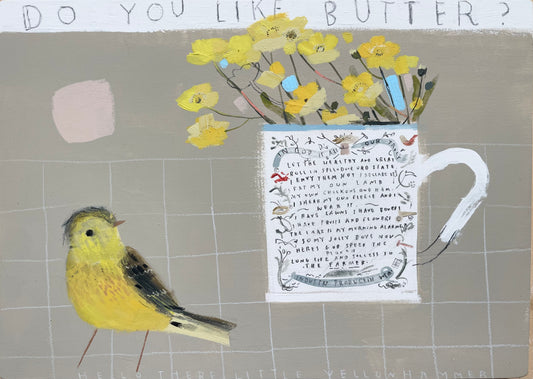 DO YOU LIKE BUTTER?
IN GOD IS ALL OUR
LET THE WEALTHY AND GREAT
ROLL IN SPLENDOUR AND STATE
I ENVY THEM NOT I DECLARE IT
I EAT MY OWN LAMB
MY OWN CHICKENS AND HAM
I SHEAR MY OWN FLEECE AND I
WEAR IT
I HAVE LAWNS I HAVE BOWERS
I HAVE FRUITS AND FLOWERS
THE LARK IS MY MORNING ALARM
SO MY JOLLY BOYS NOW
HERES GOD SPEED THE
PLOUGH
LONG LIFE AND SUCCESS TO
THE FARMER.
INDUSTRY PRODUCETH
HELLO THERE LITTLE YELLOWHAMMER